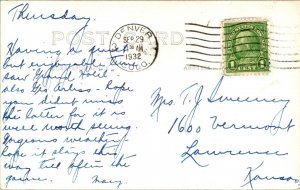 Thursday.
POST CARD
DENVER
SEP 29
1932
COLO.
1 CENT 1
Having a quiet
but enjoyable time
saw Grand
also Geo Arliss. Hope
you didn't miss
the latter for it is
well worth seeing.
Gorgeous weather
hope it stays
way till after the
game. Mary
Mrs. T. J. Sweeney
1600 Vermont
Lawrence
Kansas